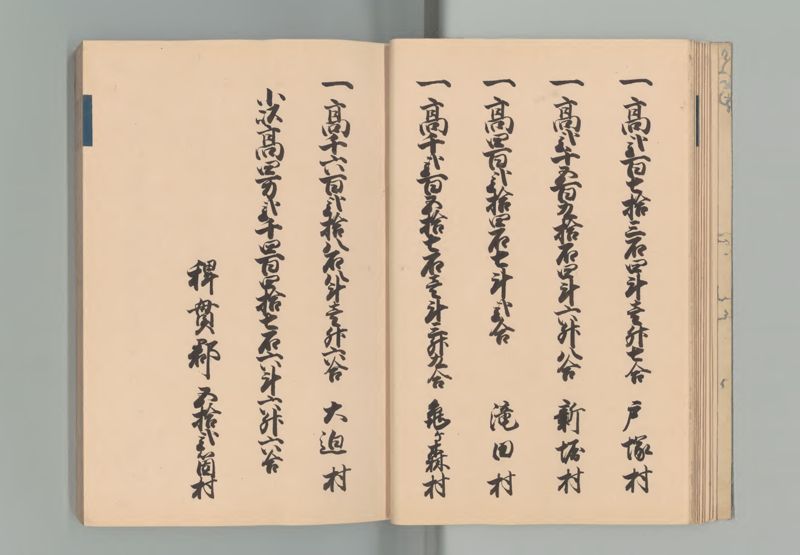 一高弐百七拾三石四斗壱升七合 戸塚村
一高弐千五百五拾石四斗六升八合 新堀村
一高四百弐拾四石七斗弐合 滝田村
一高千弐百五拾七石壱斗三升九合 亀ヶ森村
一高千六百弐拾八石八斗壱升六合 大迫村
小以高四万弐千四百四拾七石六斗六升六合
稗貫郡 五拾弐箇村